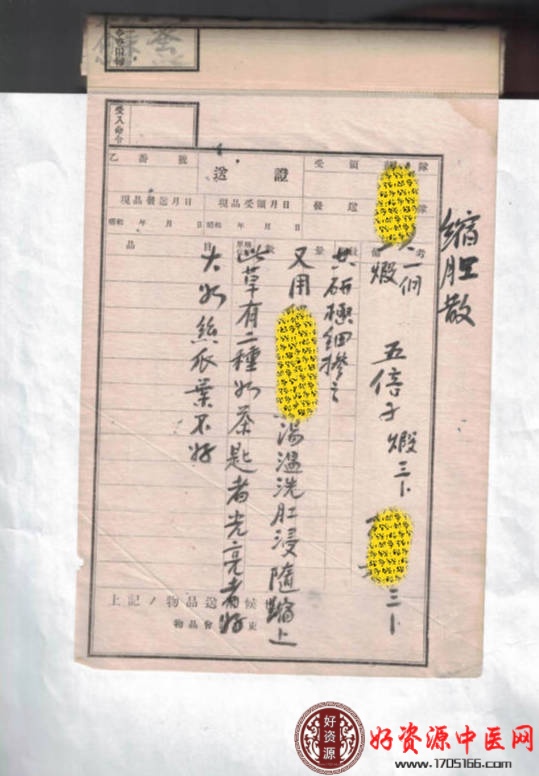 受入命令
乙番號
送證
受領 隊
現品發送月日
現品受領月日
發送 隊
昭和 年 月 日
昭和 年 月 日
品 目
數 量
備 考
縮肛散
一個
煅 五倍子煅三卜 三卜
共研極細摻之
又用 湯溫洗肛浸隨縮上
此草有二種如茶匙者光亮者好
大如絲瓜葉不好
上記ノ物品送 候
物品會
好资源
好资源中医网
www.1705166.com